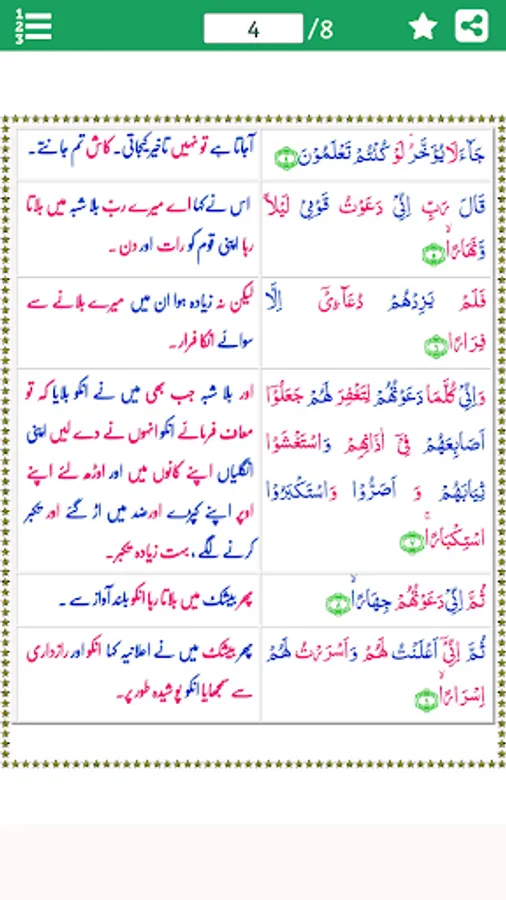 1
2
3
4
/8
جَآءَ لَا يُؤَخَّرُ ۘ لَوْ كُنْتُمْ تَعْلَمُوْنَ ﴿۴﴾
آجاتا ہے تو نہیں تاخیر کیجاتی۔ کاش تم جانتے۔
قَالَ رَبِّ اِنِّیْ دَعَوْتُ قَوْمِیْ لَیْلًا
وَّنَهَارًا ۙ ﴿۵﴾
اس نے کہا اے میرے ربّ بلا شبہ میں بلاتا
رہا اپنی قوم کو رات اور دن ۔
فَلَمْ یَزِدْهُمْ دُعَآءِیْۤ اِلَّا
فِرَارًا ﴿۶﴾
لیکن نہ زیادہ ہوا ان میں میرے بلانے سے
سوائے انکا فرار ۔
وَاِنِّیْ كُلَّمَا دَعَوْتُهُمْ لِتَغْفِرَ لَهُمْ جَعَلُوْۤا
اَصَابِعَهُمْ فِیْۤ اٰذَانِهِمْ وَاسْتَغْشَوْا
ثِیَابَهُمْ وَ اَصَرُّوْا وَاسْتَكْبَرُوا
اسْتِكْبَارًا ۚ ﴿۷﴾
اور بلا شبہ جب بھی میں نے انکو بلایا کہ تو
معاف فرمائے انکو انہوں نے دے لیں اپنی
انگلیاں اپنے کانوں میں اور اوڑھ لئے اپنے
اوپر اپنے کپڑے اور ضد میں اڑ گئے اور تکبر
کرنے لگے ، بہت زیادہ تکبر۔
ثُمَّ اِنِّیْ دَعَوْتُهُمْ جِهَارًا ۙ ﴿۸﴾
پھر بیشک میں بلاتا رہا انکو بلند آواز سے ۔
ثُمَّ اِنِّیْۤ اَعْلَنْتُ لَهُمْ وَاَسْرَرْتُ لَهُمْ
اِسْرَارًا ۙ ﴿۹﴾
پھر بیشک میں نے اعلانیہ کہا انکو اور رازداری
سے سمجھایا انکو پوشیدہ طور پر۔